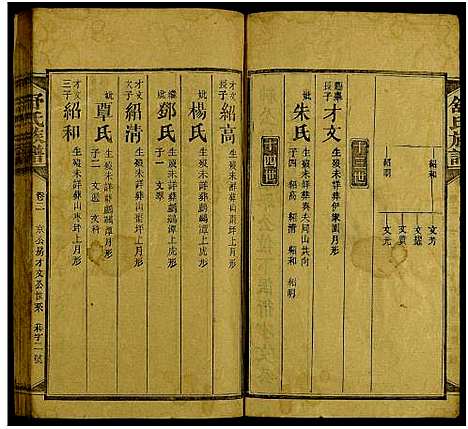 舒氏族譜
紹和
紹明
文芳
文選
文元
十三世
長子
才文
生歿未詳葬伊家園月形
妣
朱氏
生歿未詳葬夫同山共向
子四 紹高 紹清 紹和 紹明
十四世
才文
長子
紹高
生歿未詳葬山南坪月形
妣
楊氏
生歿未詳葬鸕鷀潭上虎形
繼妣
鄧氏
生歿未詳葬鸕鷀潭上虎形
子一 文翠
才文
次子
紹清
生歿未詳葬山南坪上月形
妣
覃氏
生歿未詳葬鸕鷀潭月形
子二 文選 文科
才文
三子
紹和
生歿未詳葬山枣坪上月形
舒氏族譜
卷二
京公房才文公世系